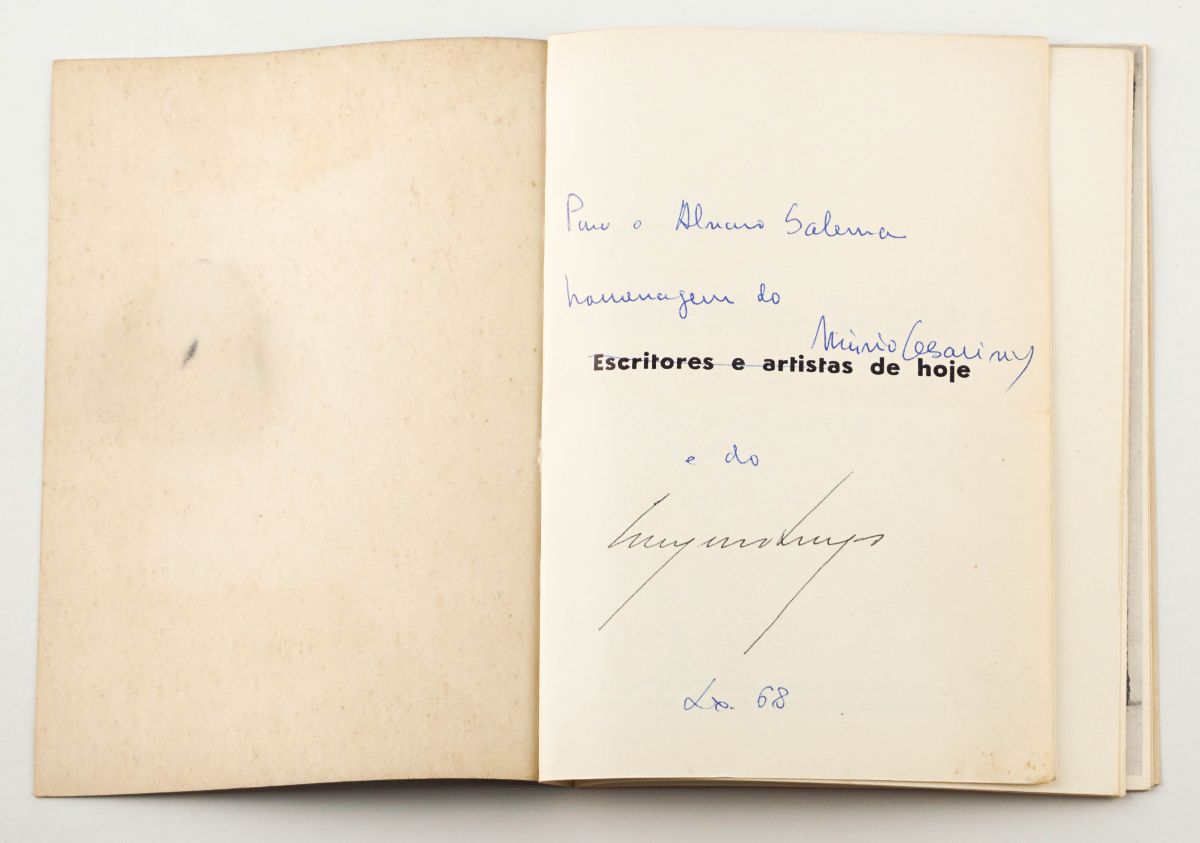 Para o Alvaro Salema
homenagem do
Mário Cesariny
Escritores e artistas de hoje
e do
Lx. 68